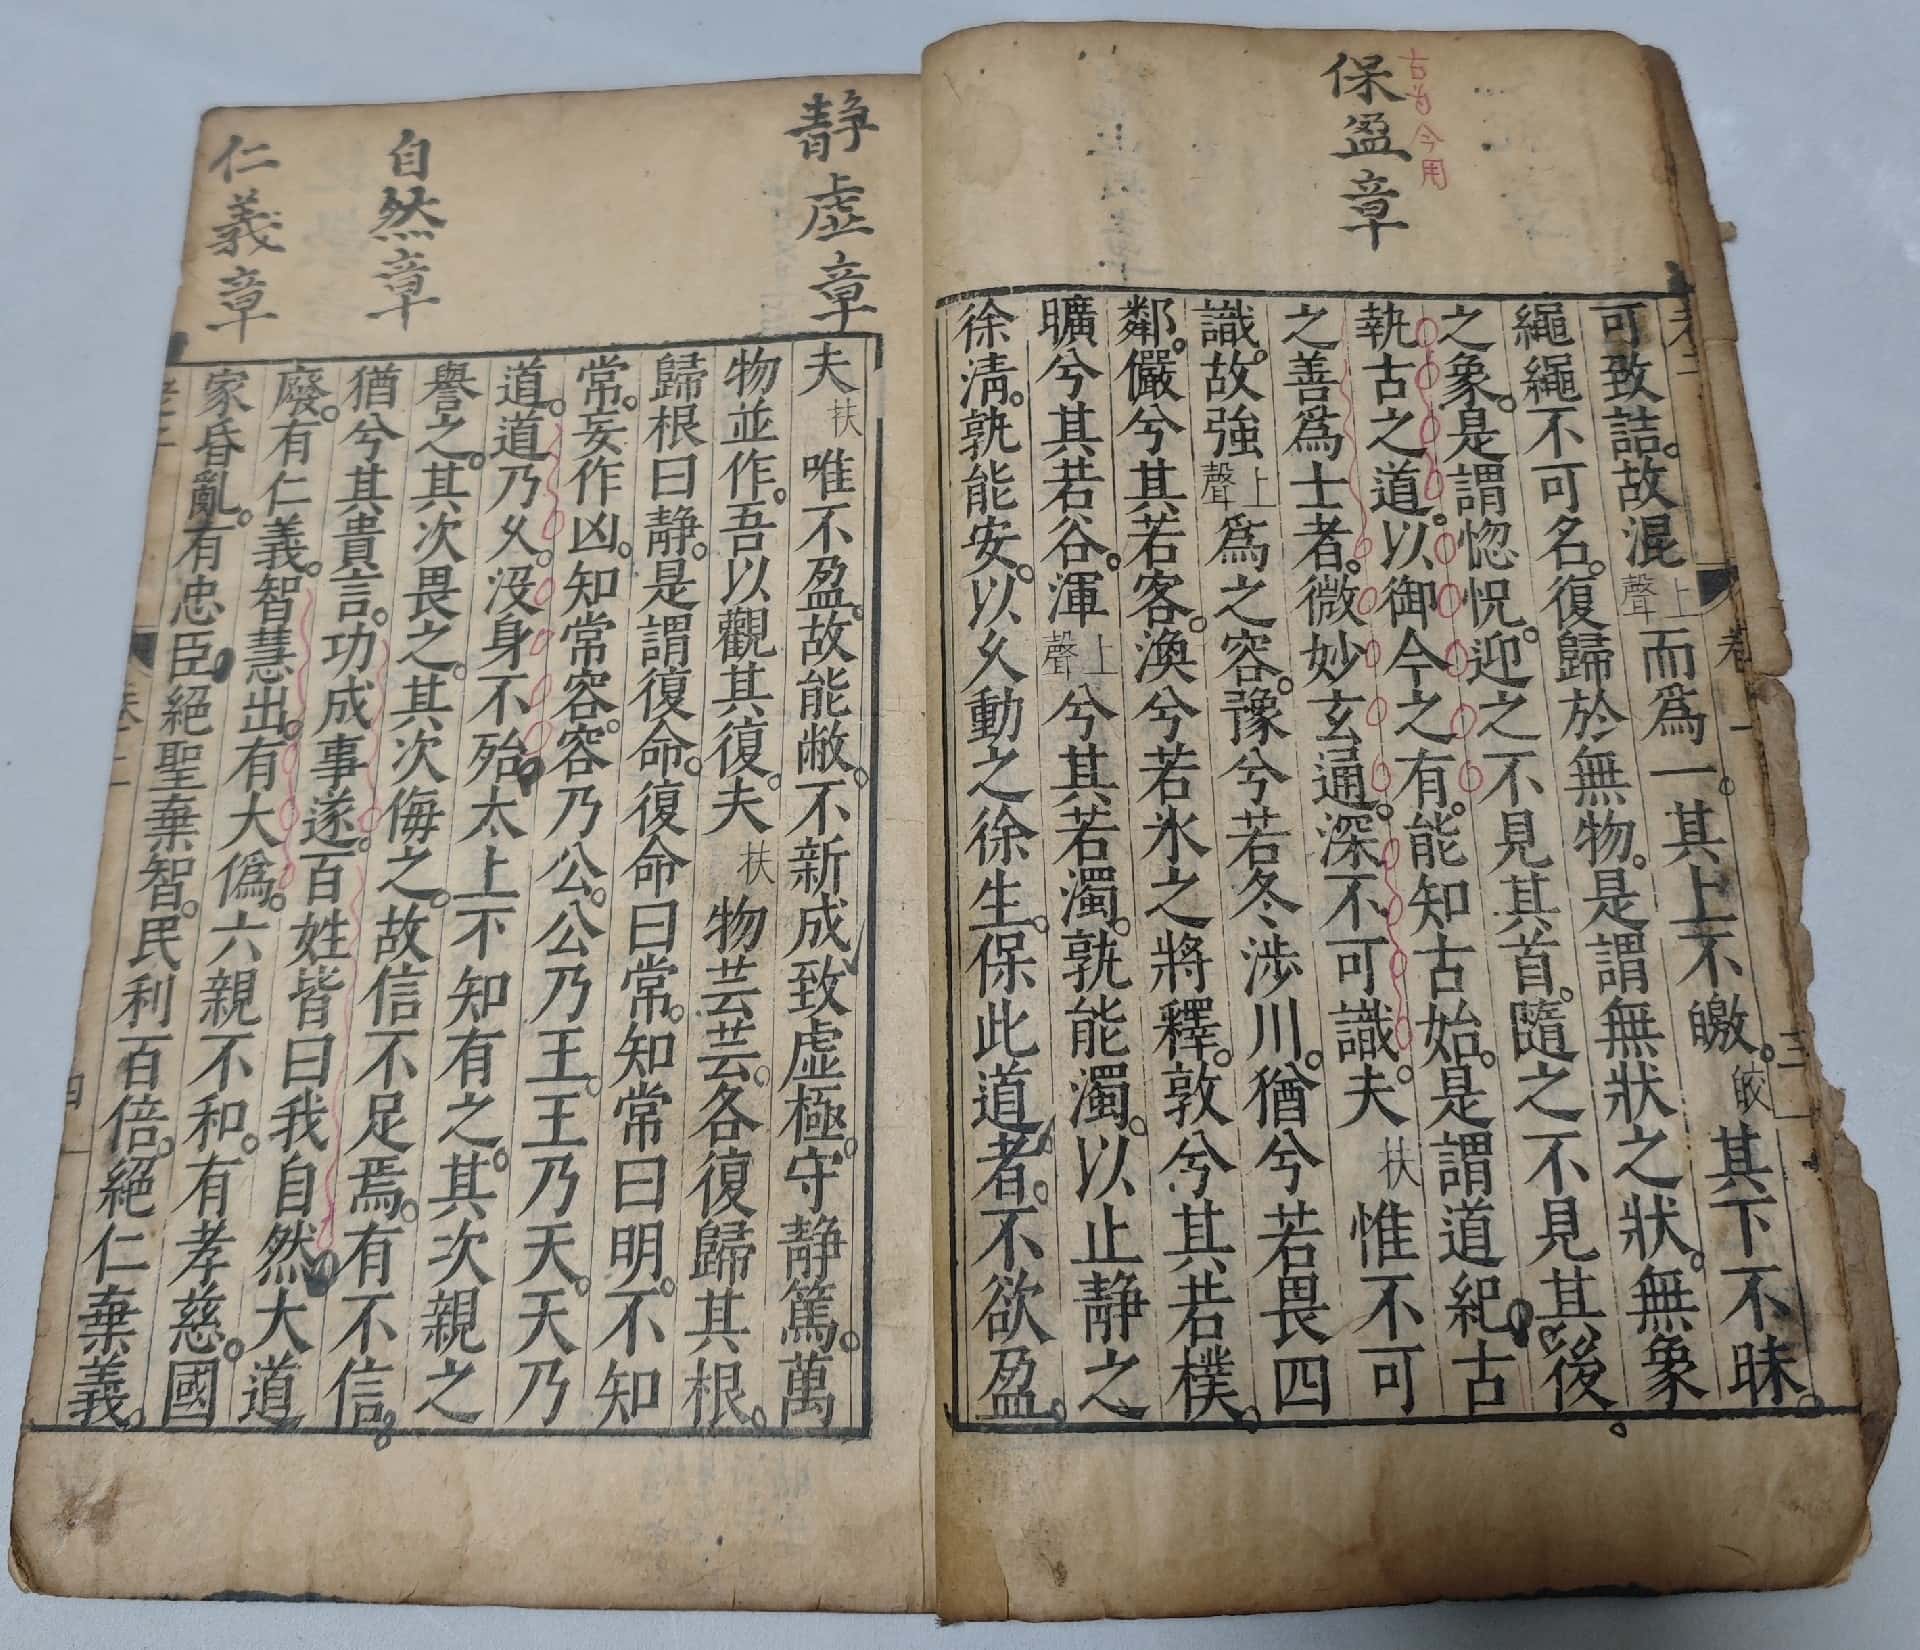 保盈章
古为今用
可致詰故混上聲而爲一其上不皦皎其下不昧
繩繩不可名復歸於無物是謂無狀之狀無象
之象是謂惚怳迎之不見其首隨之不見其後
執古之道以御今之有能知古始是謂道紀古
之善爲士者微妙玄通深不可識夫扶惟不可
識故強上聲爲之容豫兮若冬涉川猶兮若畏四
鄰儼兮其若客渙兮若氷之將釋敦兮其若樸
曠兮其若谷渾上聲兮其若濁孰能濁以止静之
徐淸孰能安以久動之徐生保此道者不欲盈
卷一
三
靜虛章
自然章
仁義章
夫扶唯不盈故能敝不新成致虛極守静篤萬
物並作吾以觀其復夫扶物芸芸各復歸其根
歸根曰静是謂復命復命曰常知常曰明不知
常妄作凶知常容容乃公公乃王王乃天天乃
道道乃久没身不殆太上不知有之其次親之
譽之其次畏之其次侮之故信不足焉有不信
猶兮其貴言功成事遂百姓皆曰我自然大道
廢有仁義智慧出有大僞六親不和有孝慈國
家昏亂有忠臣絕聖棄智民利百倍絕仁棄義
四